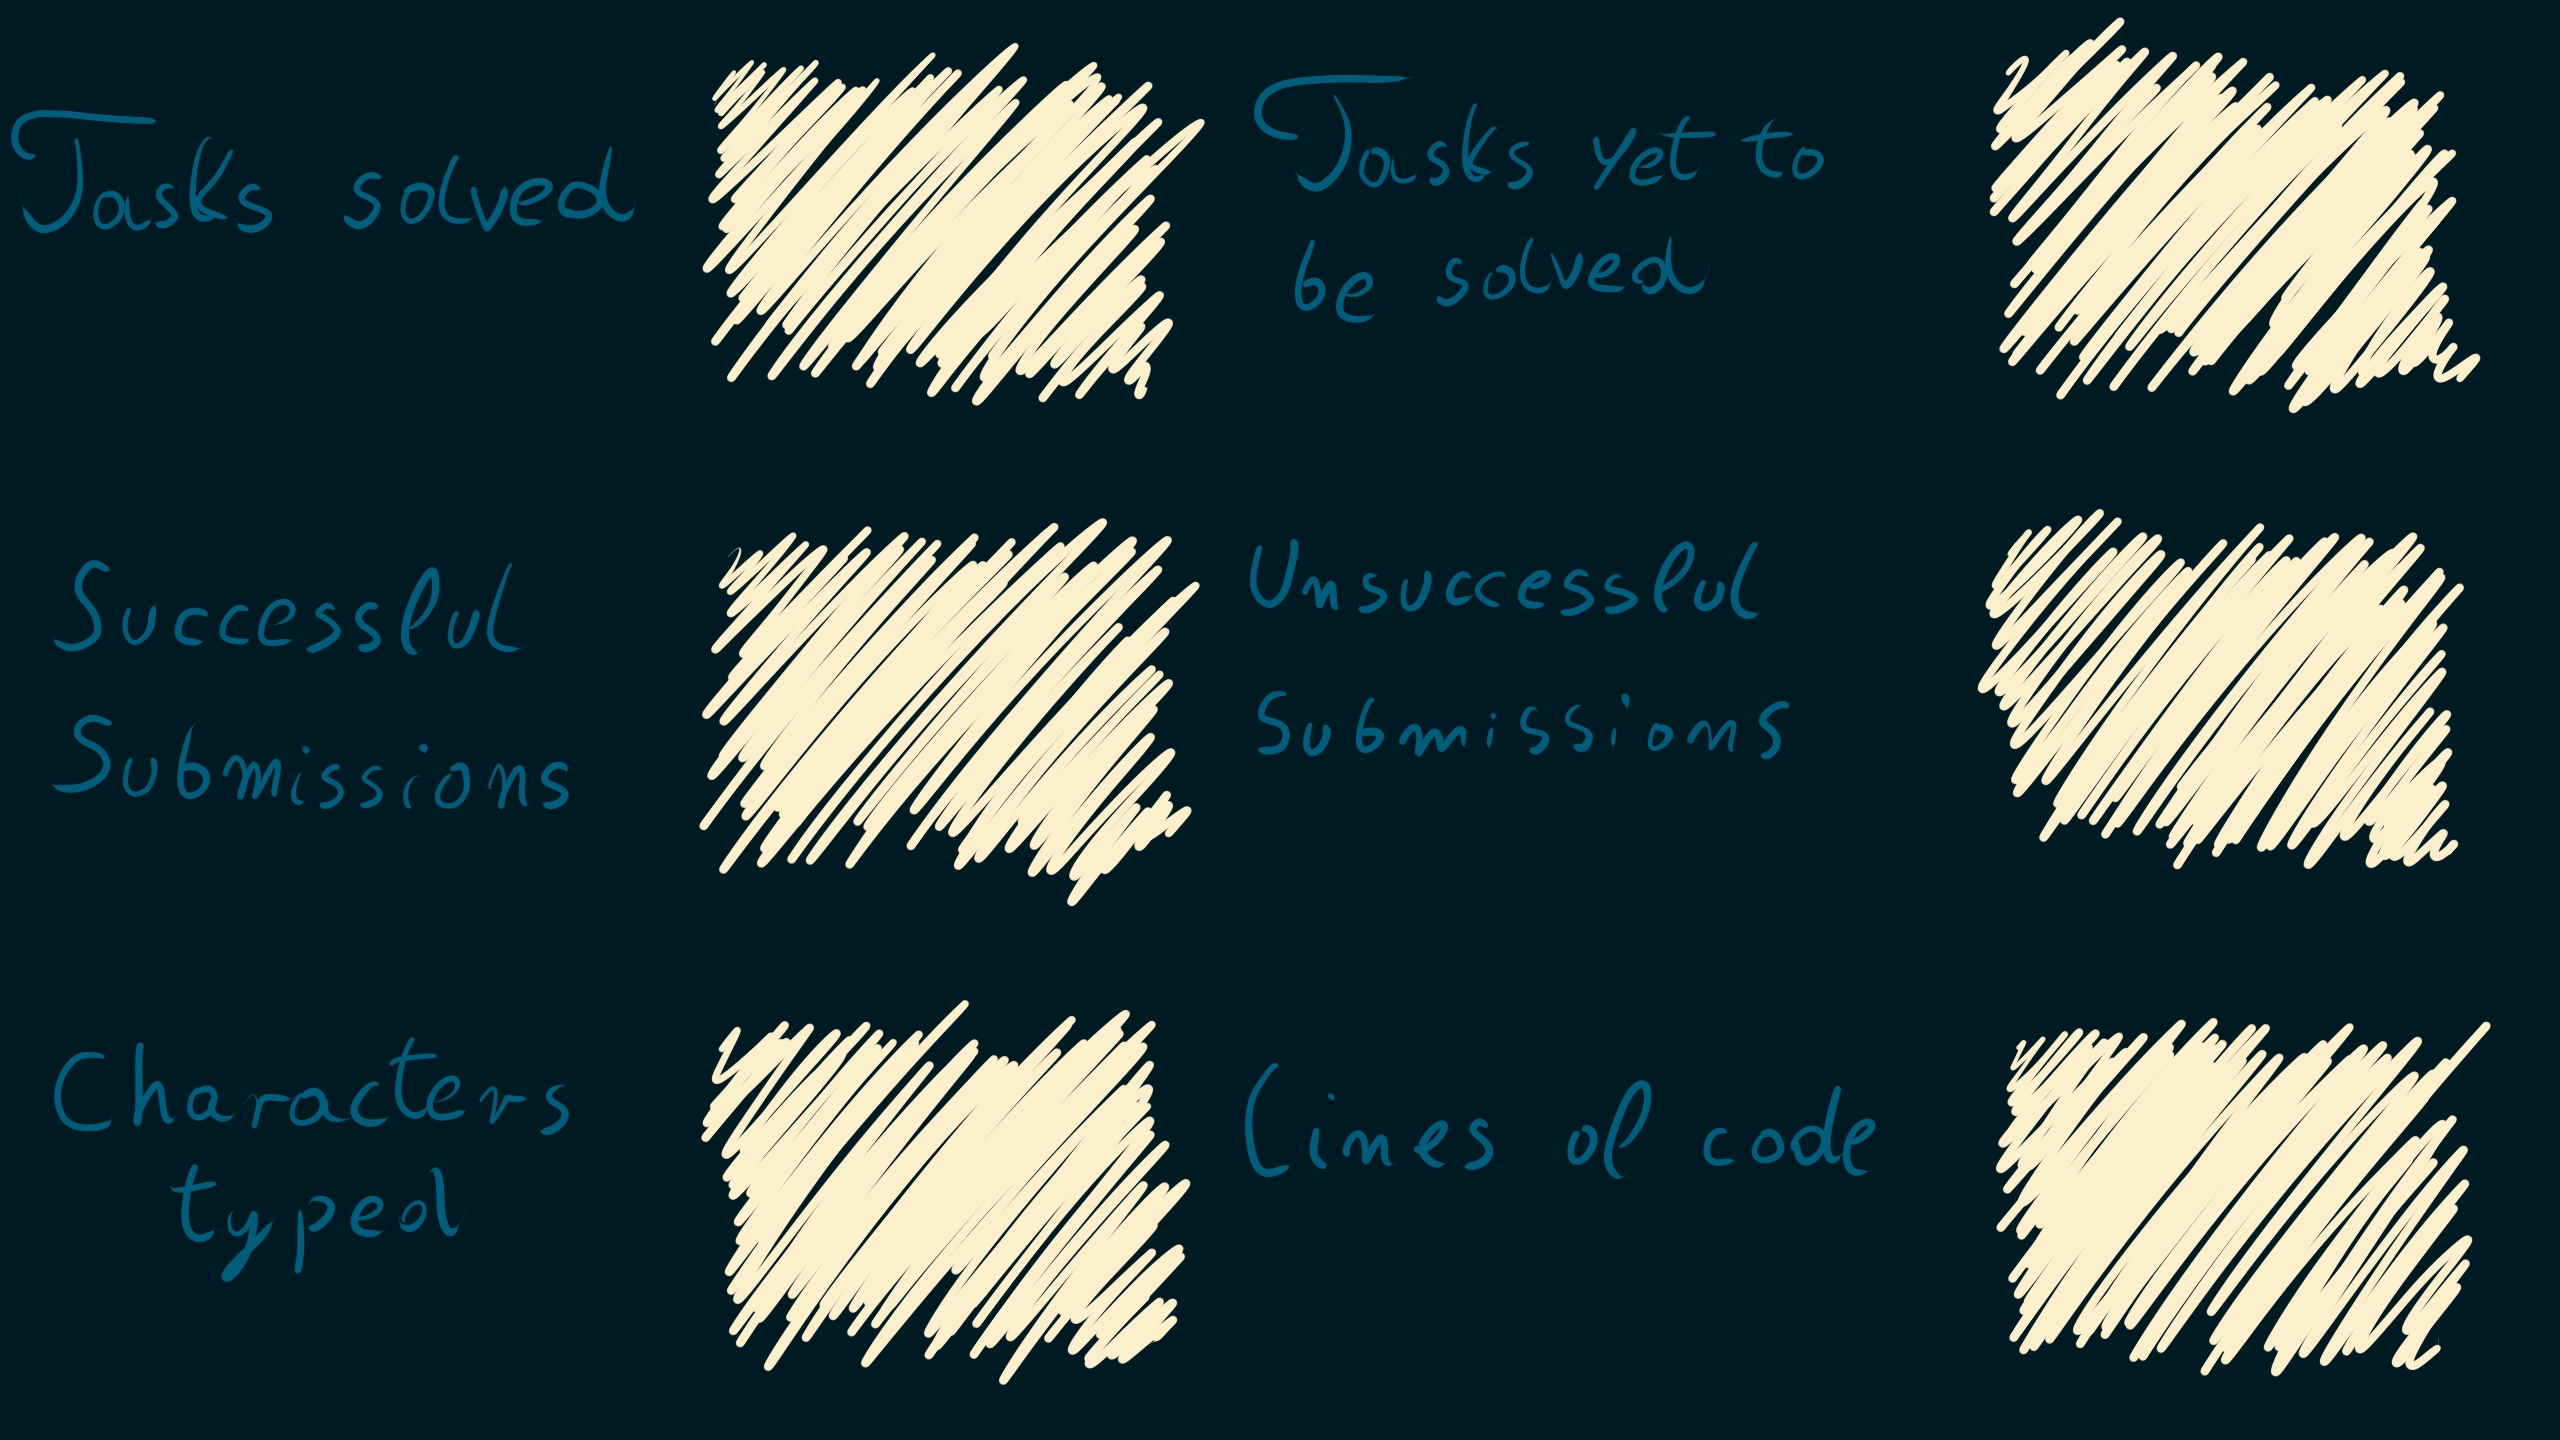 Tasks solved
Tasks yet to
be solved
Successful
Submissions
Unsuccessful
Submissions
Characters
typed
Lines of code